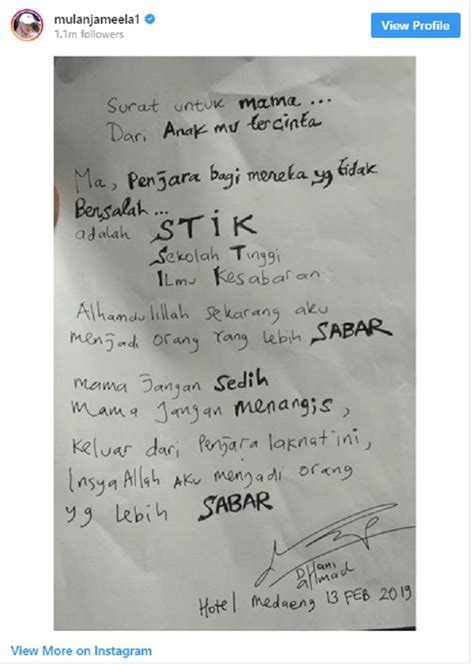 mulanjameela1
1.1m followers
View Profile
Surat untuk mama ...
Dari Anak mu tercinta
Ma, Penjara bagi mereka yg tidak
Bersalah ...
adalah STIK
Sekolah Tinggi
Ilmu Kesabaran
Alhamdulillah sekarang aku
menjadi orang yang lebih SABAR
mama jangan sedih
Mama jangan menangis,
Keluar dari Penjara laknat ini,
InsyaAllah AKu menjadi orang
yg lebih SABAR
DHani
aHmad
Hotel Medaeng 13 FEB 2019
View More on Instagram